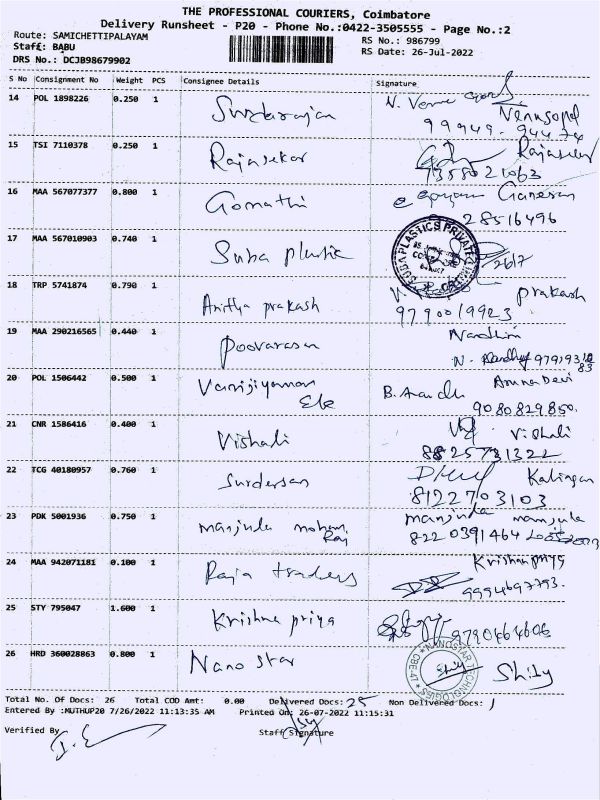 THE PROFESSIONAL COURIERS, Coimbatore
Delivery Runsheet - P20 - Phone No.:0422-3505555 - Page No.:2
Route: SAMICHETTIPALAYAM
RS No.: 986799
Staff: BABU
RS Date: 26-Jul-2022
DRS No.: DCJB98679902
S No Consignment No Weight PCS Consignee Details Signature
14 POL 1898226 0.250 1 N. Venu Venugopal
99949- 94474
15 TSI 7110378 0.250 1 Rajasekar
7358021063
16 MAA 567077377 0.800 1 Gomathi Ganesan
28516496
17 MAA 567010903 0.740 1 Suba plastic 26/7
PLASTICS PRIVATE
18 TRP 5741874 0.790 1 prakash prakash
9790019923
19 MAA 290216565 0.440 1 Poovarasan Nandhini
20 POL 1506442 0.500 1 B. Aruna Devi
9080829850.
21 CNR 1586416 0.400 1 Vishali Vishali
8825731322
22 TCG 40180957 0.760 1
8122703103
23 PDK 5001936 0.750 1 manjula mohan Raj manjula manjula
8220391464
24 MAA 942071181 0.100 1 Raja traders Krishnapriya
9994697793.
25 STY 795047 1.600 1 Krishna priya 9790464606
26 HRD 360028863 0.800 1 Nano star
NANOSTAR TECHNOLOGIES
CBE-47
Total No. Of Docs: 26 Total COD Amt: 0.00 Delivered Docs: 25 Non Delivered Docs: 1
Entered By :MUTHUP20 7/26/2022 11:13:35 AM Printed On: 26-07-2022 11:15:31
Verified By Staff Signature